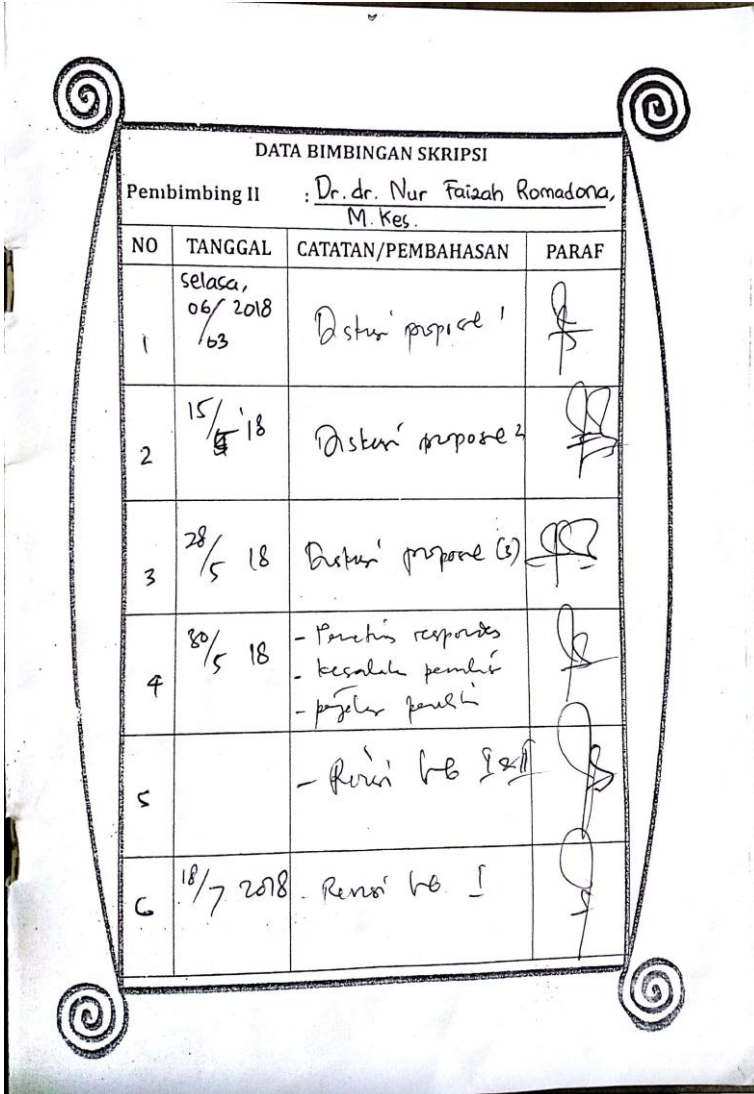 DATA BIMBINGAN SKRIPSI
Pembimbing II : Dr. dr. Nur Faizah Romadona,
M. Kes.
NO TANGGAL CATATAN/PEMBAHASAN PARAF
selasa,
1 06/03 2018 Diskusi proposal 1
2 15/5 '18 Diskusi proposal 2
3 28/5 18 Diskusi proposal (3)
4 30/5 18 - responden
- kesalahan penulis
- penelitian
5 - Revisi bab I & II
6 18/7 2018 - Revisi bab I